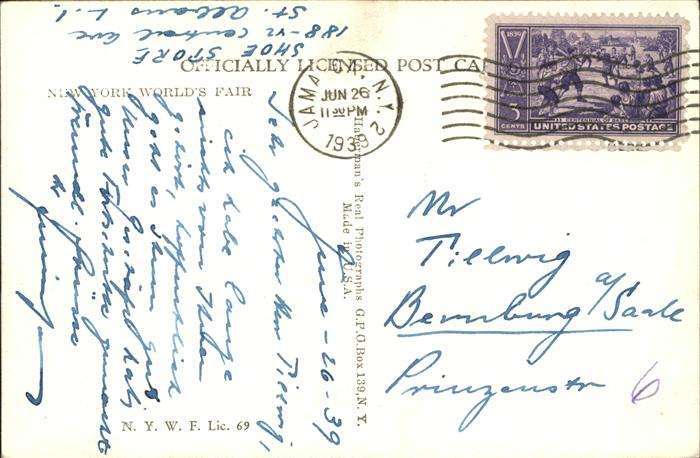 OFFICIALLY LICENSED POST CA
NEW YORK WORLD'S FAIR
JAMAICA, N.Y. 2
JUN 26
11 30 PM
1939
1839 1939
3
CENTS
CENTENNIAL OF BASEBALL
UNITED STATES POSTAGE
SHOE STORE
188-12 Central Ave
St. Albans L. I.
June - 26 - 39
Sehr geehrter Herr Tillwig,
ich habe lange
nichts von Ihnen
gehört, hoffentlich
geht es Ihnen gut
haben
gute Fortschritte gemacht
freundl. Grüsse
Haberman's Real Photographs G.P.O. Box 139, N. Y.
Made in U.S.A.
Mr
Tillwig
Bernburg a/Saale
Prinzenstr 6
N. Y. W. F. Lic. 69